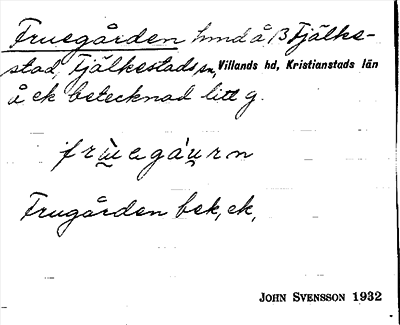 Fruegården hmd å 13 Fjälke-
stad, Fjälkestads sn, Villands hd, Kristianstads län
å ek betecknad litt g.
frùe gáu̯rn
Frugården bek, ek,
JOHN SVENSSON 1932